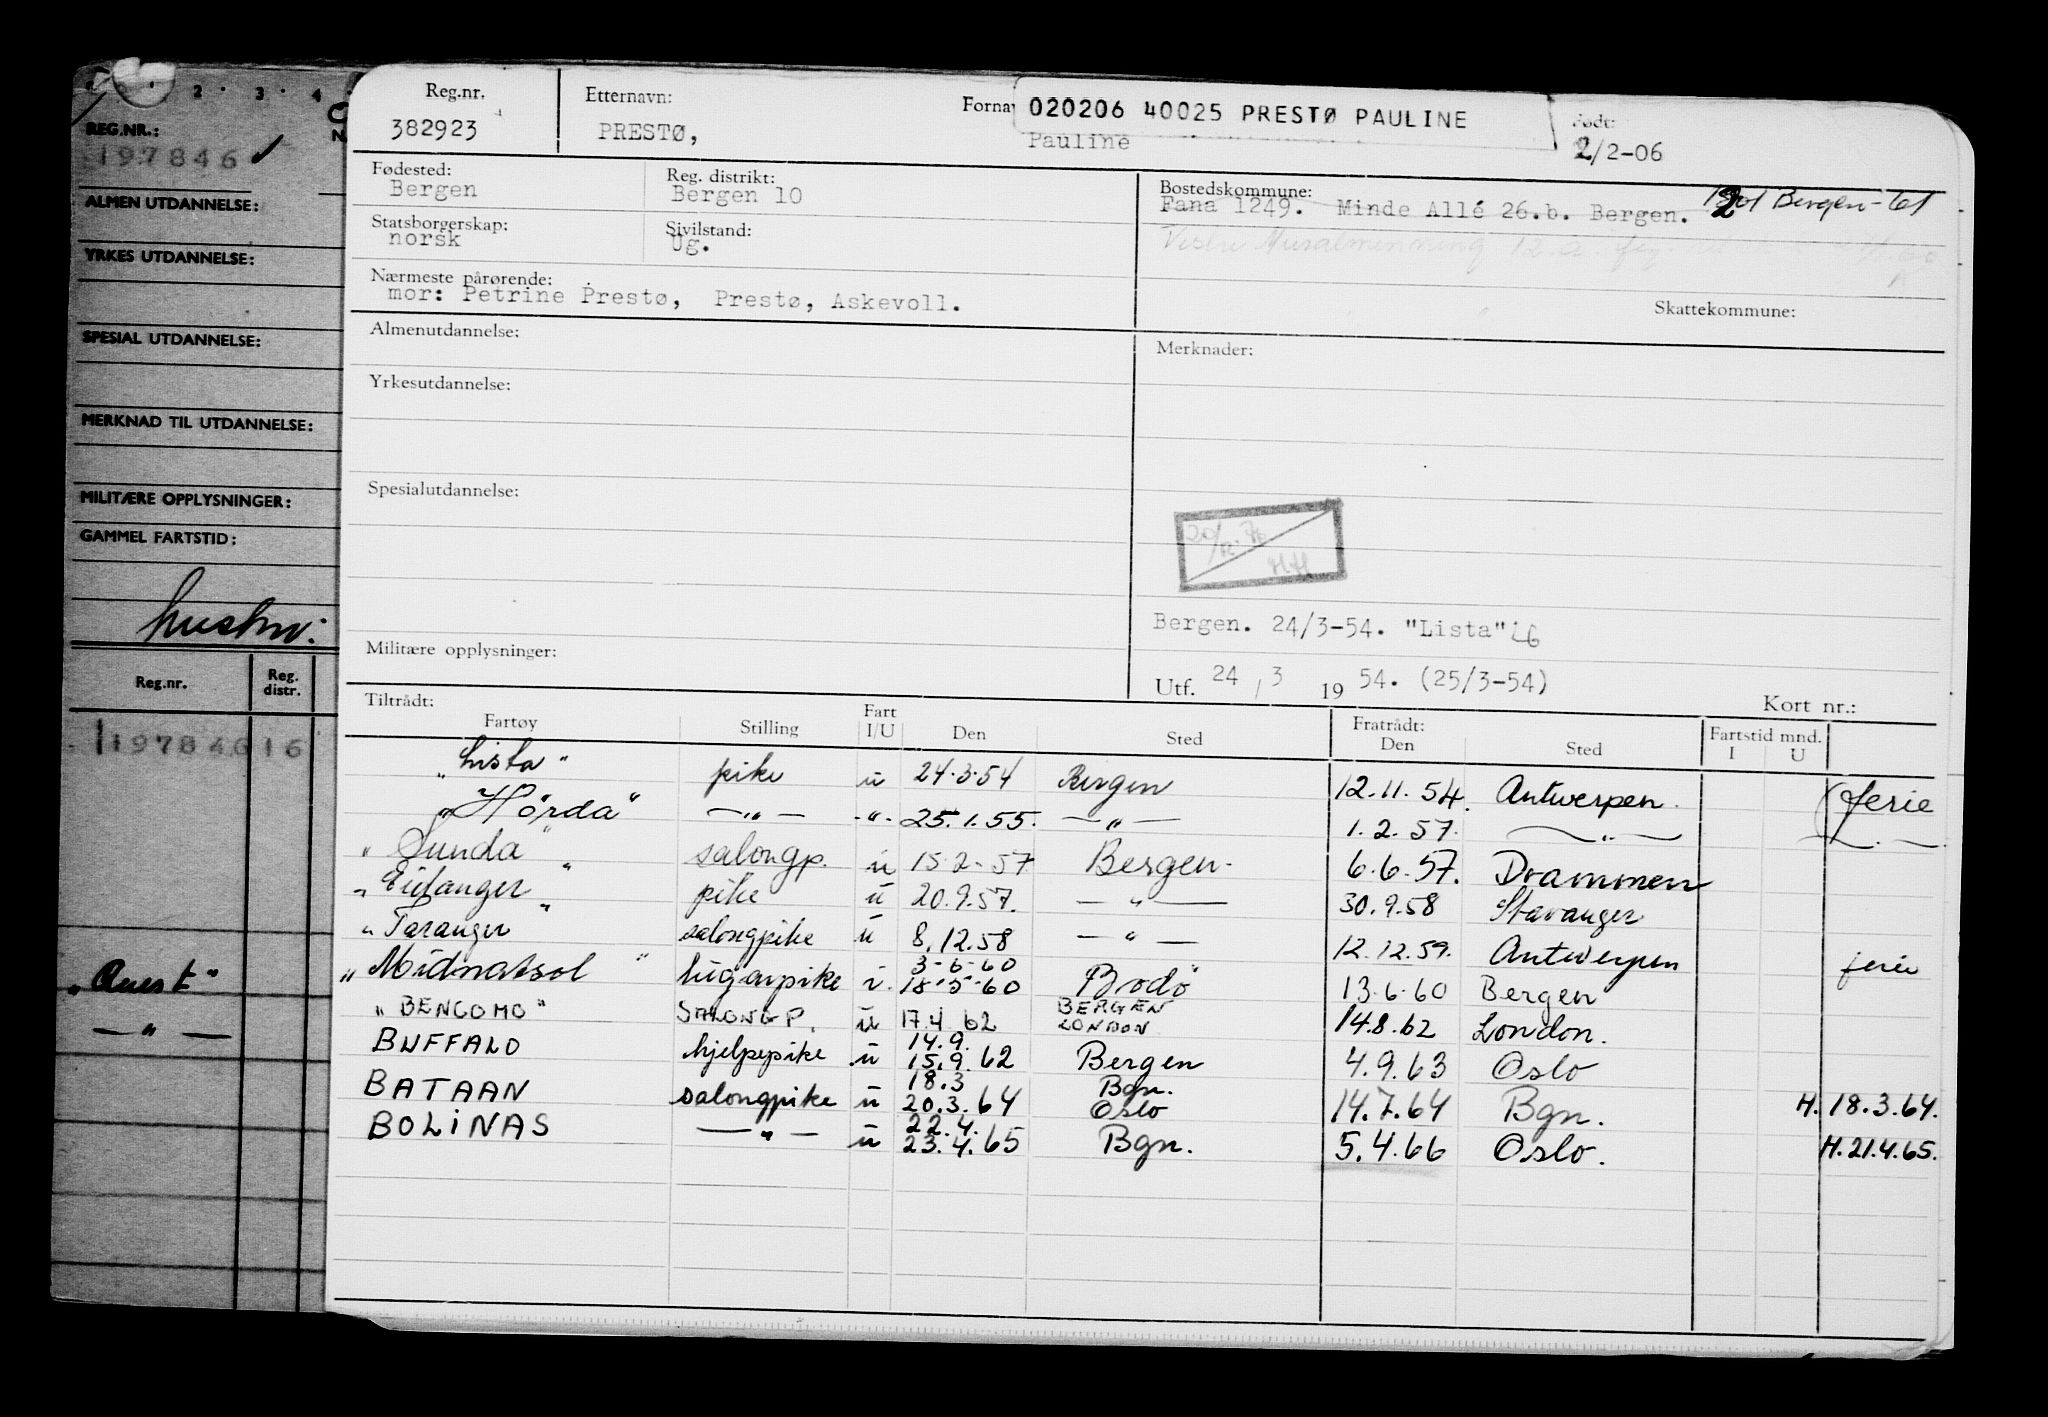 2 · 3 · 4
REG.NR.:
197846 ✓
N
ALMEN UTDANNELSE:
YRKES UTDANNELSE:
SPESIAL UTDANNELSE:
MERKNAD TIL UTDANNELSE:
MILITÆRE OPPLYSNINGER:
GAMMEL FARTSTID:
Reg.nr. Reg. distr.
197846 16
— " —
Reg.nr. Etternavn: Forna 020206 40025 PRESTØ PAULINE Født:
382923 PRESTØ, Pauline 2/2-06
Fødested: Reg. distrikt: Bostedskommune:
Bergen Bergen 10 Fana 1249. Minde Allé 26.b. Bergen. Bergen-61
Statsborgerskap: Sivilstand:
norsk Ug.
Nærmeste pårørende:
mor: Petrine Prestø, Prestø, Askevoll.
Skattekommune:
Almenutdannelse: Merknader:
Yrkesutdannelse:
Spesialutdannelse:
Bergen. 24/3-54. "Lista"
Militære opplysninger:
Utf. 24 / 3 19 54. (25/3-54)
Kort nr.:
Tiltrådt: Fratrådt:
Fartøy Stilling Fart I/U Den Sted Den Sted Fartstid mnd. I U
"Lista" pike u 24.3.54 Bergen 12.11.54. Antwerpen. ferie
"Hörda" —"— -"- 25.1.55. —"— 1.2.57. —"—
"Sunda" salongp. u 15.2.57 Bergen. 6.6.57. Drammen
pike u 20.9.57. —"— 30.9.58 Stavanger
"Taranger" salongpike u 8.12.58 —"— 12.12.59. Antwerpen ferie
"Midnatsol" lugarpike i. 3-6-60 18-5-60 Bodö 13.6.60 Bergen
"BENCOMO" SALONGP. u 17.4 62 BERGEN LONDON 14.8.62 London.
BUFFALO hjelpepike u 14.9. 15.9.62 Bergen 4.9.63 Oslo
BATAAN salongpike u 18.3 20.3.64 Bgn. Oslo 14.7.64 Bgn. H. 18.3.64.
BOLINAS —"— u 22.4. 23.4.65 Bgn. 5.4.66 Oslo. H.21.4.65.